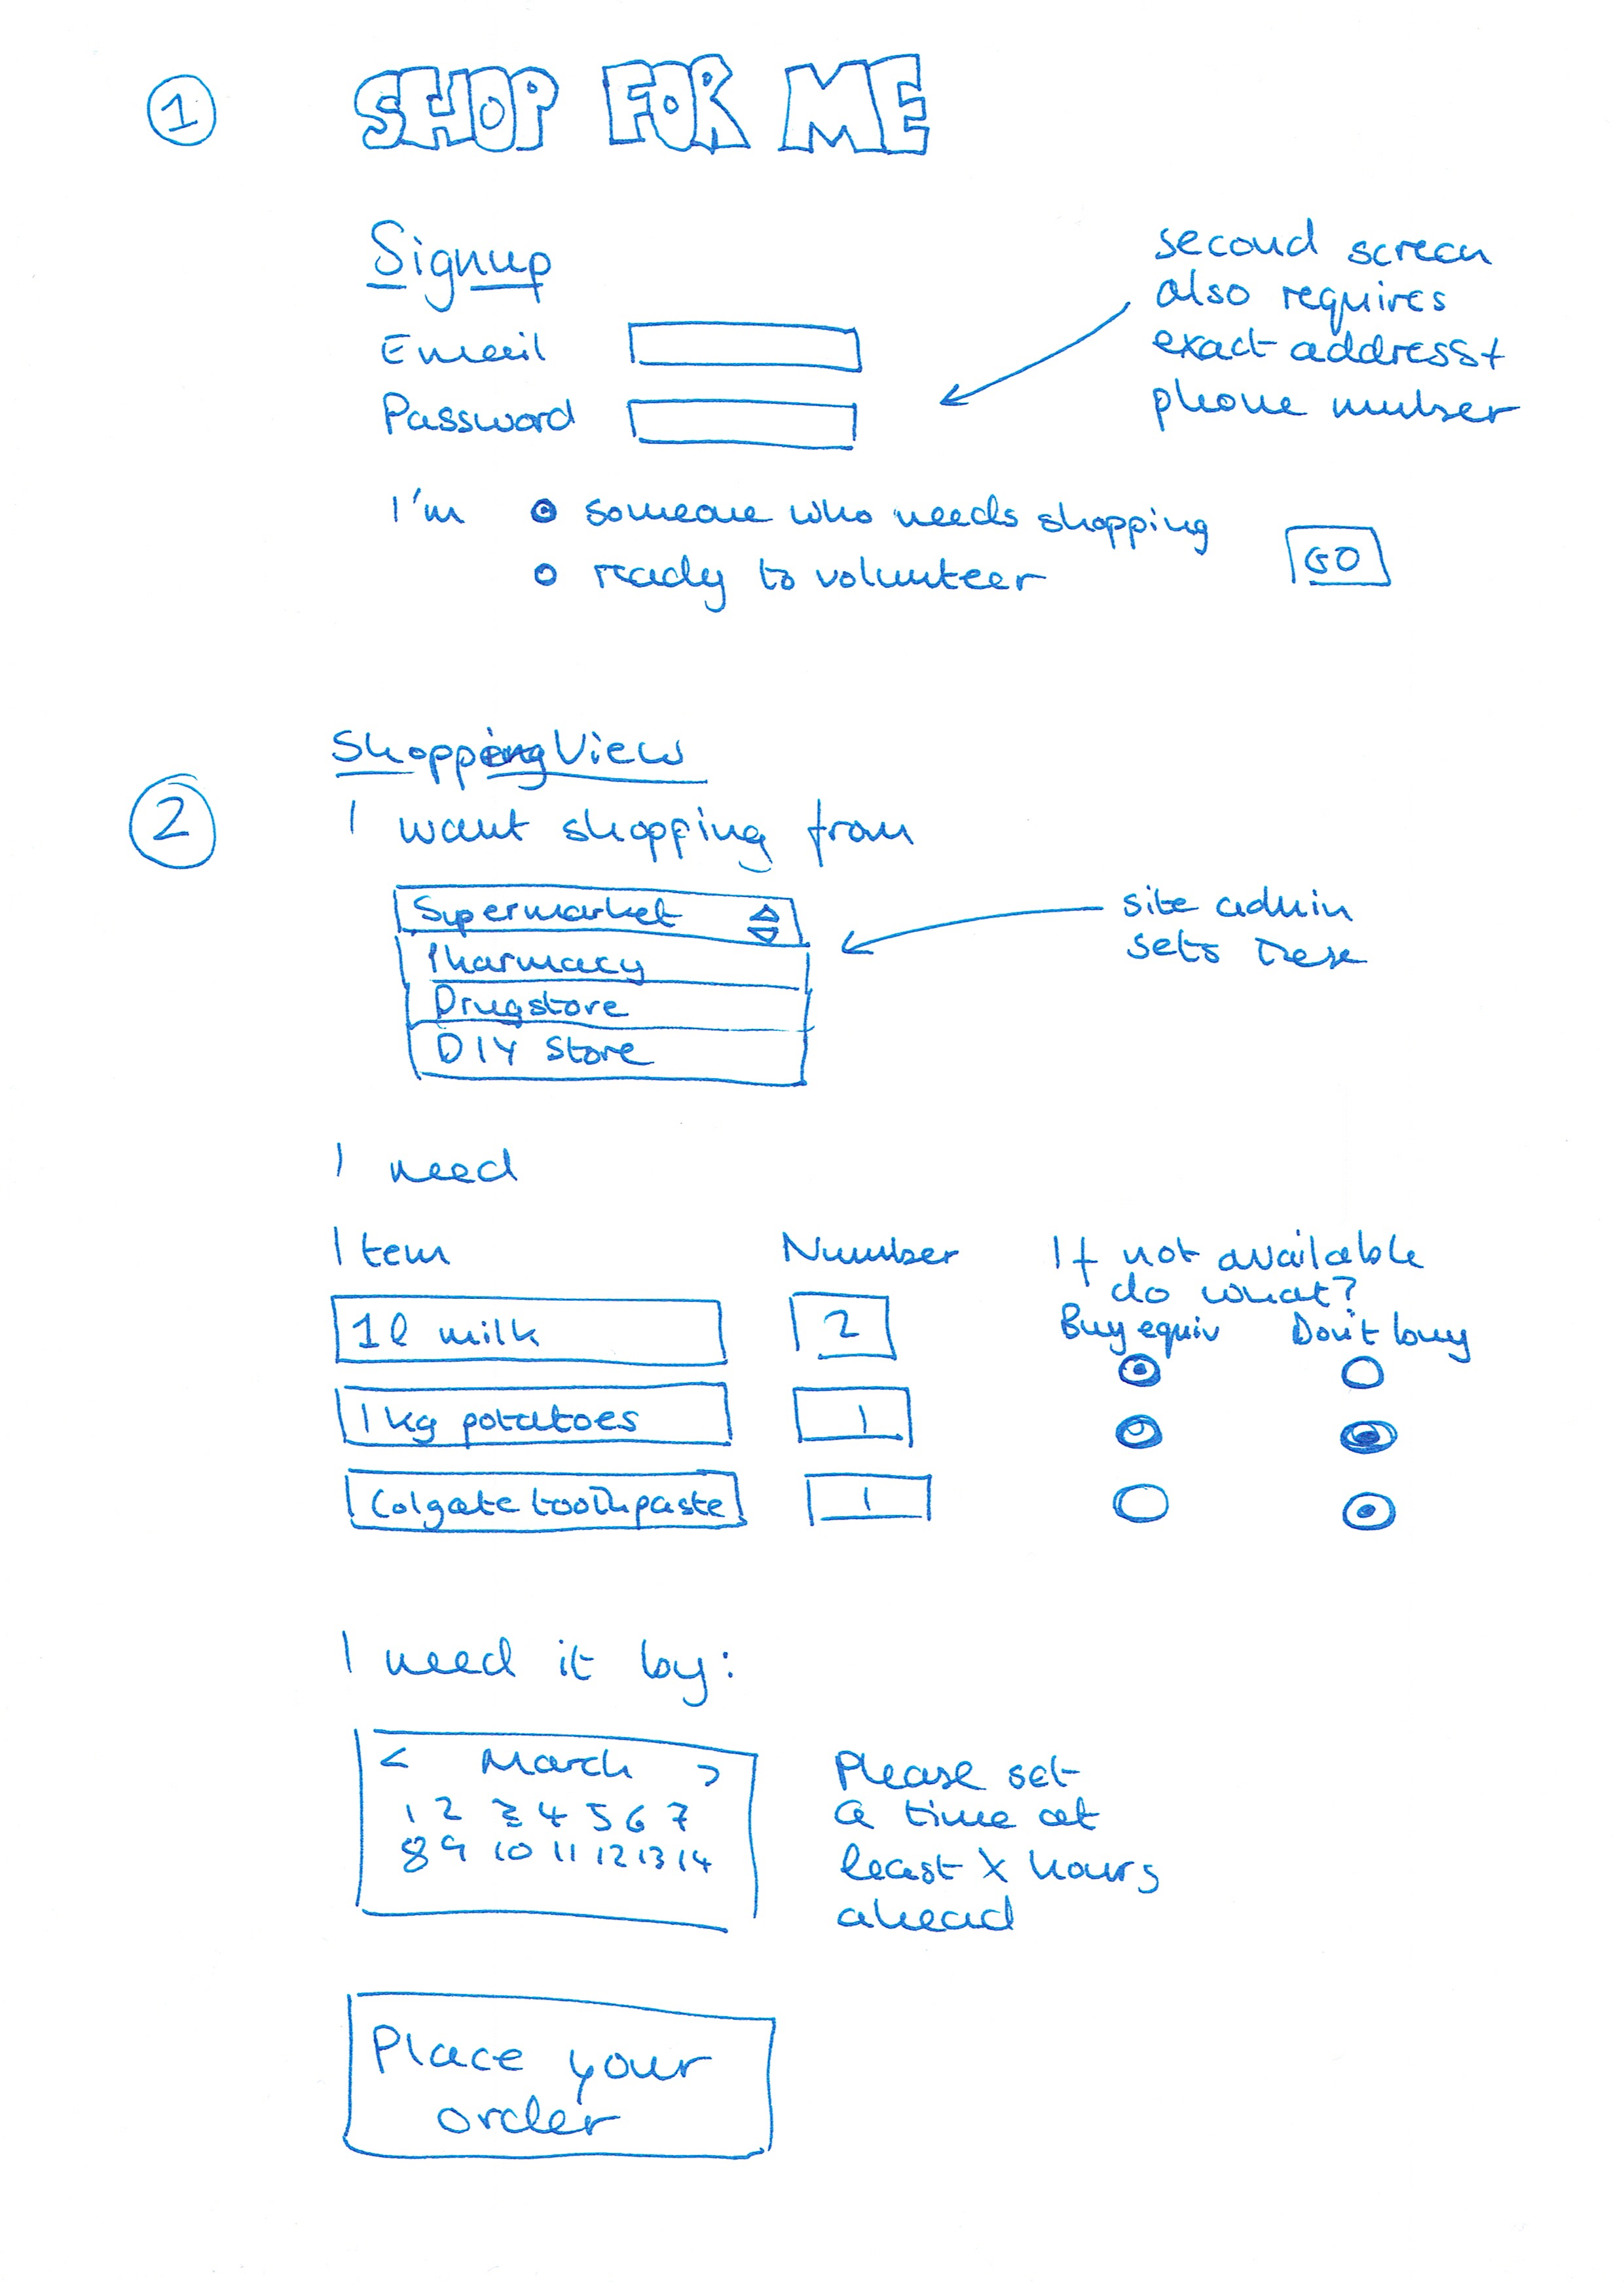 1
SHOP FOR ME
Signup
second screen
also requires
exact address +
phone number
Email
Password
I'm
someone who needs shopping
ready to volunteer
GO
Shopping View
2
I want shopping from
Supermarket
Pharmacy
Drugstore
DIY Store
site admin
sets these
I need
Item
Number
If not available
do what?
Buy equiv
Don't buy
1l milk
2
1 kg potatoes
1
Colgate toothpaste
1
I need it by:
< March >
1 2 3 4 5 6 7
8 9 10 11 12 13 14
Please set
a time at
least X hours
ahead
Place your
order